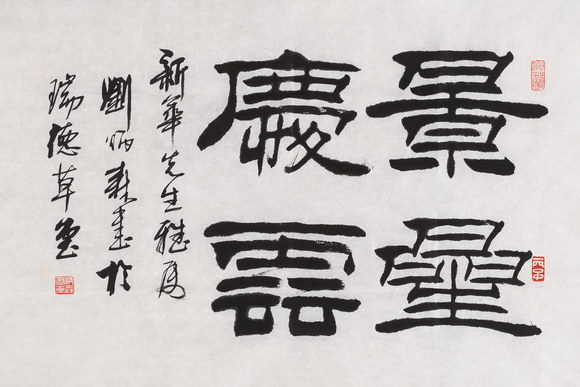 景星
慶雲
新華先生雅屬
劉炳森書於
瑞德草堂